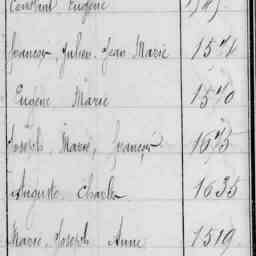 Constant Eugène
François, Julien, Jean Marie 1571
Eugène Marie 1570
Joseph, Marie, François 1675
Auguste, Charles 1635
Marie, Joseph, Anne 1519